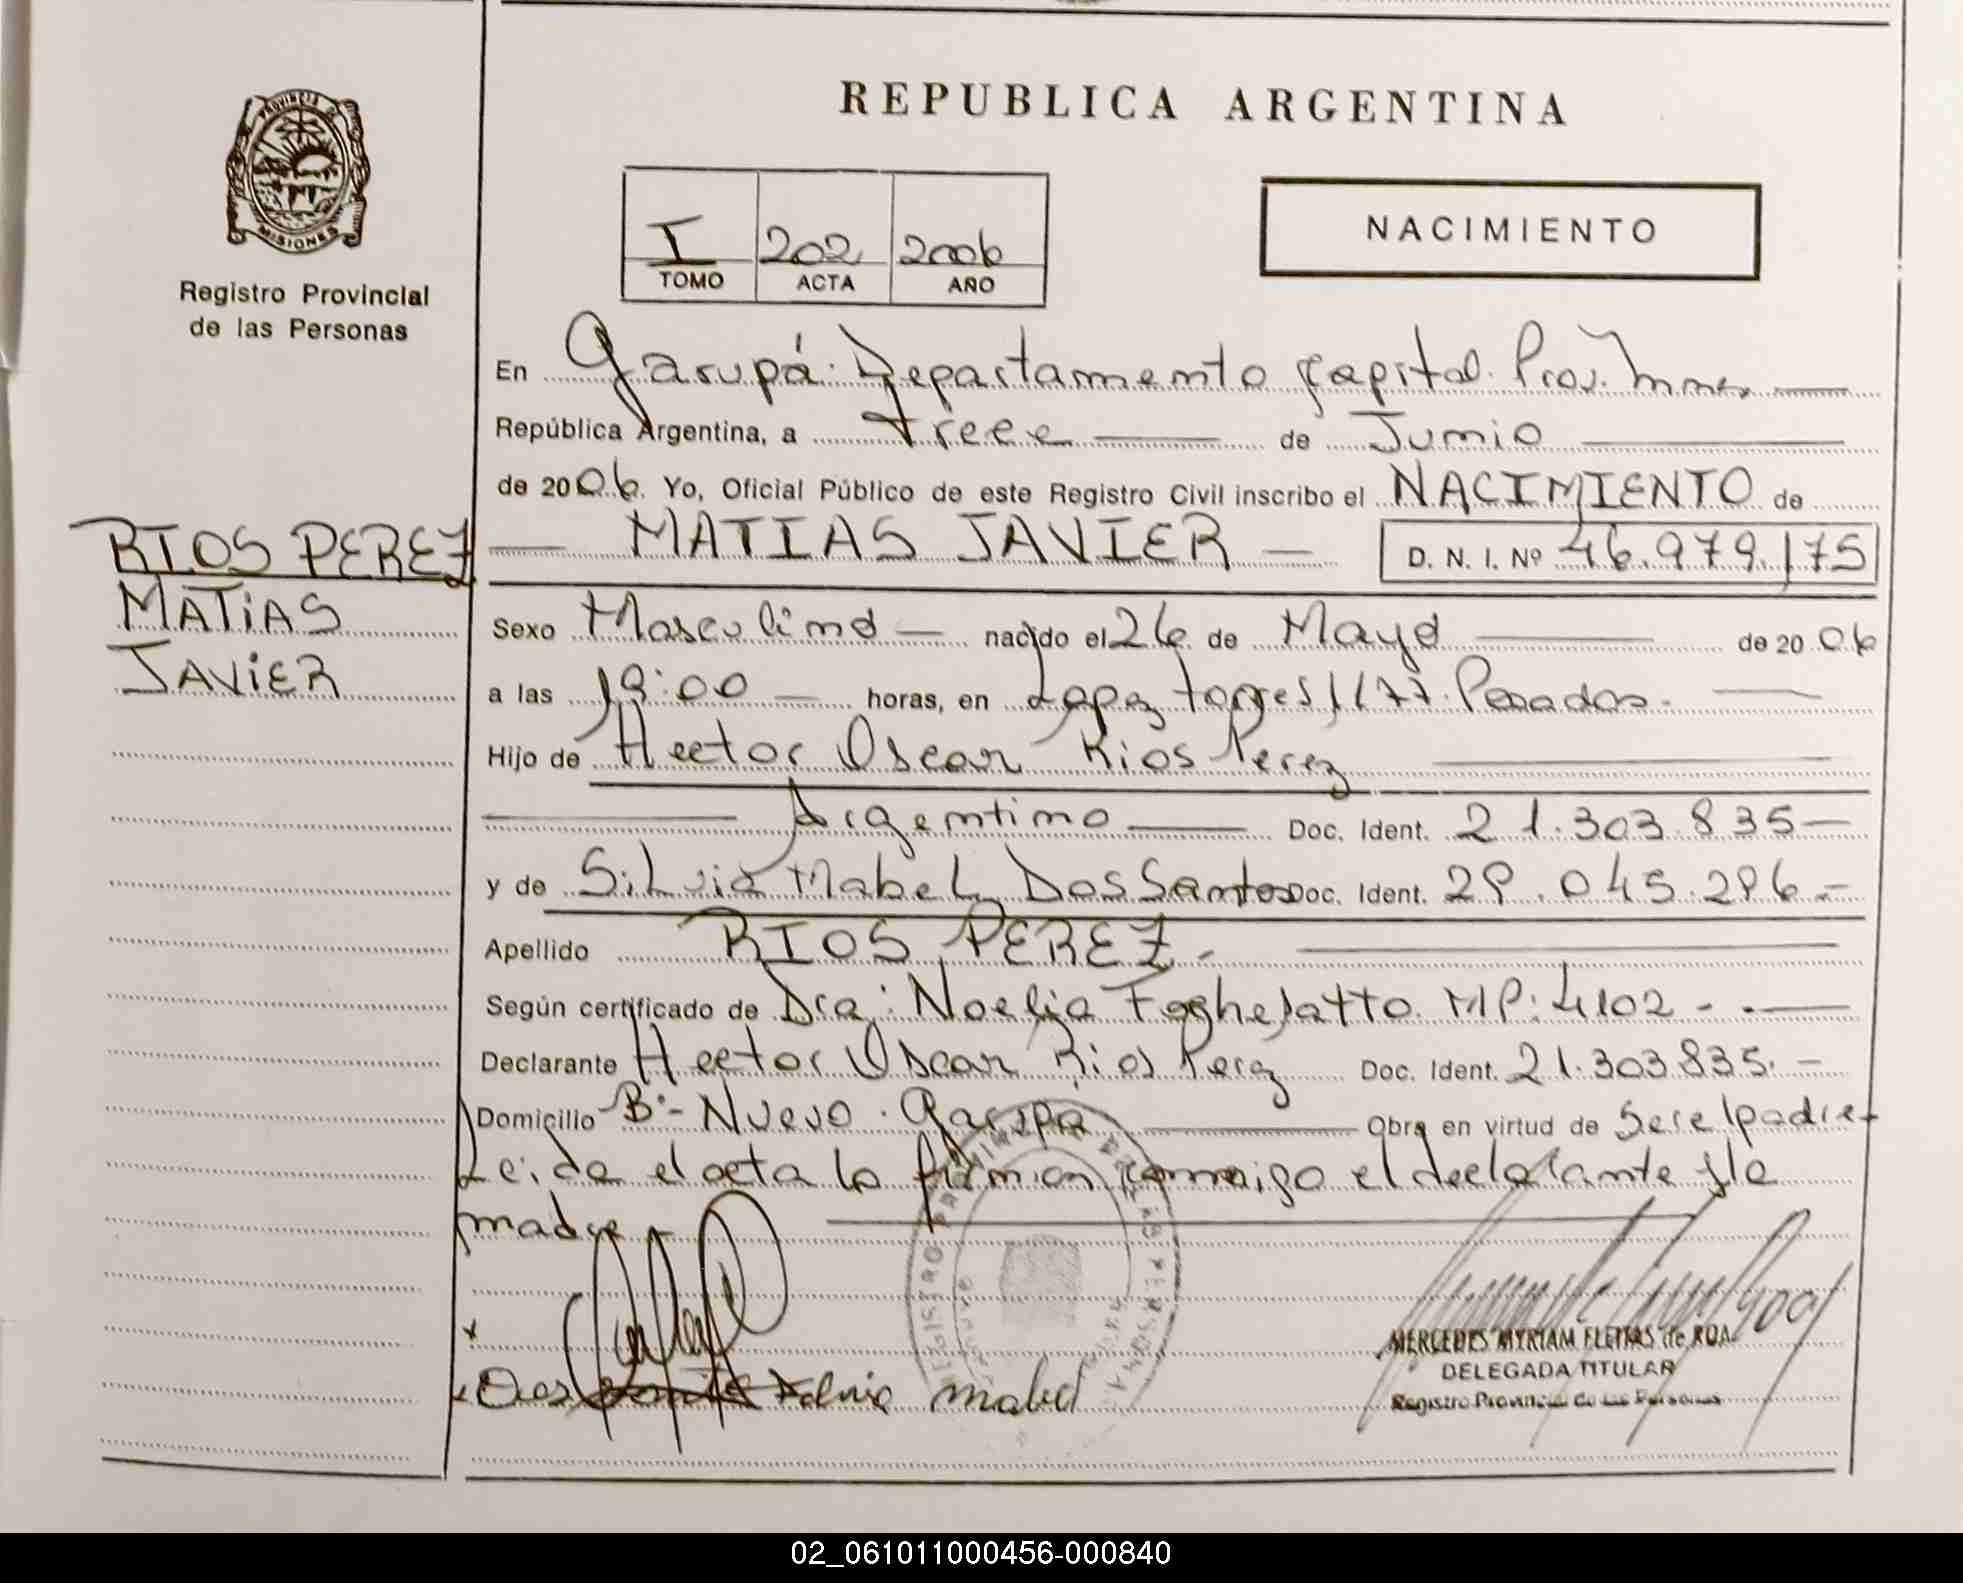 REPUBLICA ARGENTINA
PROVINCIA DE
MISIONES
Registro Provincial
de las Personas
I 202 2006
TOMO ACTA AÑO
NACIMIENTO
En Garupá. Departamento Capital. Prov. Mnes
República Argentina, a trece de Junio
de 2006. Yo, Oficial Público de este Registro Civil inscribo el NACIMIENTO de
RIOS PEREZ
MATIAS
JAVIER
MATIAS JAVIER D. N. I. Nº 46.979.175
Sexo Masculino nacido el 26 de Mayo de 2006
a las 19:00 horas, en Lopez torres 1177. Posadas.
Hijo de Hector Oscar Rios Perez
Argentino Doc. Ident. 21.303.835
y de Silvia Mabel Dos Santos Doc. Ident. 29.045.296.-
Apellido RIOS PEREZ.-
Según certificado de Dra: Noelia MP: 4102 -.
Declarante Hector Oscar Rios Perez Doc. Ident. 21.303.835.-
Domicilio Bº- Nuevo. Garupa Obra en virtud de ser el padre-
Leida el acta la firman conmigo el declarante y la
madre
Dos Silvia Mabel
MERCEDES MYRIAM FLEITAS de ROA
DELEGADA TITULAR
Registro Provincial de las Personas
02_061011000456-000840